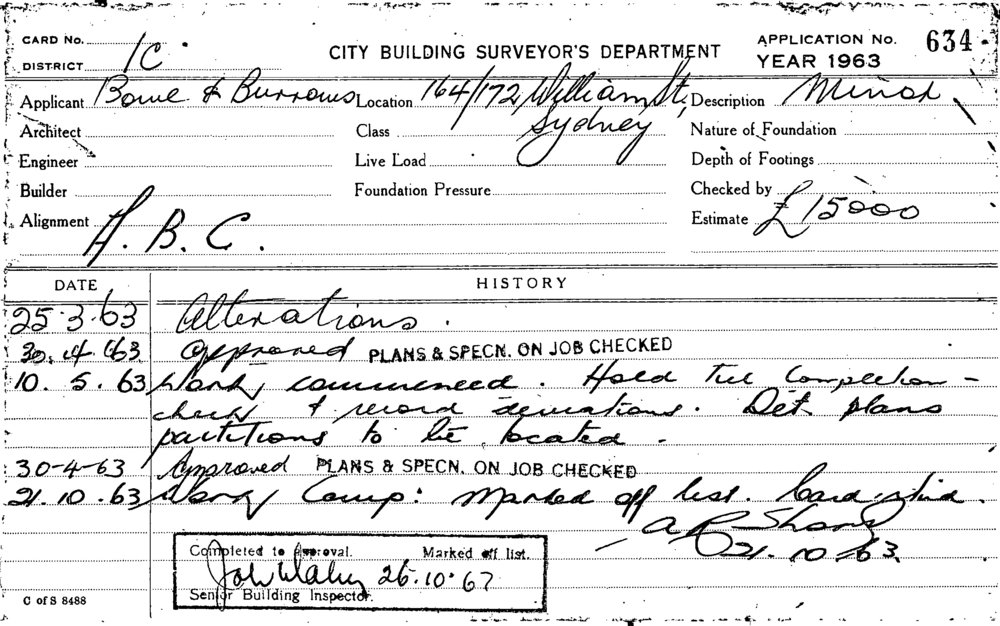 CARD No.
DISTRICT 1C
CITY BUILDING SURVEYOR'S DEPARTMENT
APPLICATION No. 634
YEAR 1963
Applicant Bowe & Burrows Location 164/172 William St, Description Minor
Sydney
Architect Class Nature of Foundation
Engineer Live Load Depth of Footings
Builder Foundation Pressure Checked by
Alignment Estimate £15000
A. B. C.
DATE HISTORY
25.3.63 Alterations.
30.4.63 Approved PLANS & SPECN. ON JOB CHECKED
10.5.63 Work commenced. Hold till Completion -
check & record deviations. Det. plans
partitions to be located.
30-4-63 Approved PLANS & SPECN. ON JOB CHECKED
21.10.63 Work Comp: Marked off list. Card
21.10.63.
Completed to approval. Marked off list.
26.10.67
Senior Building Inspector.
C of S 8488